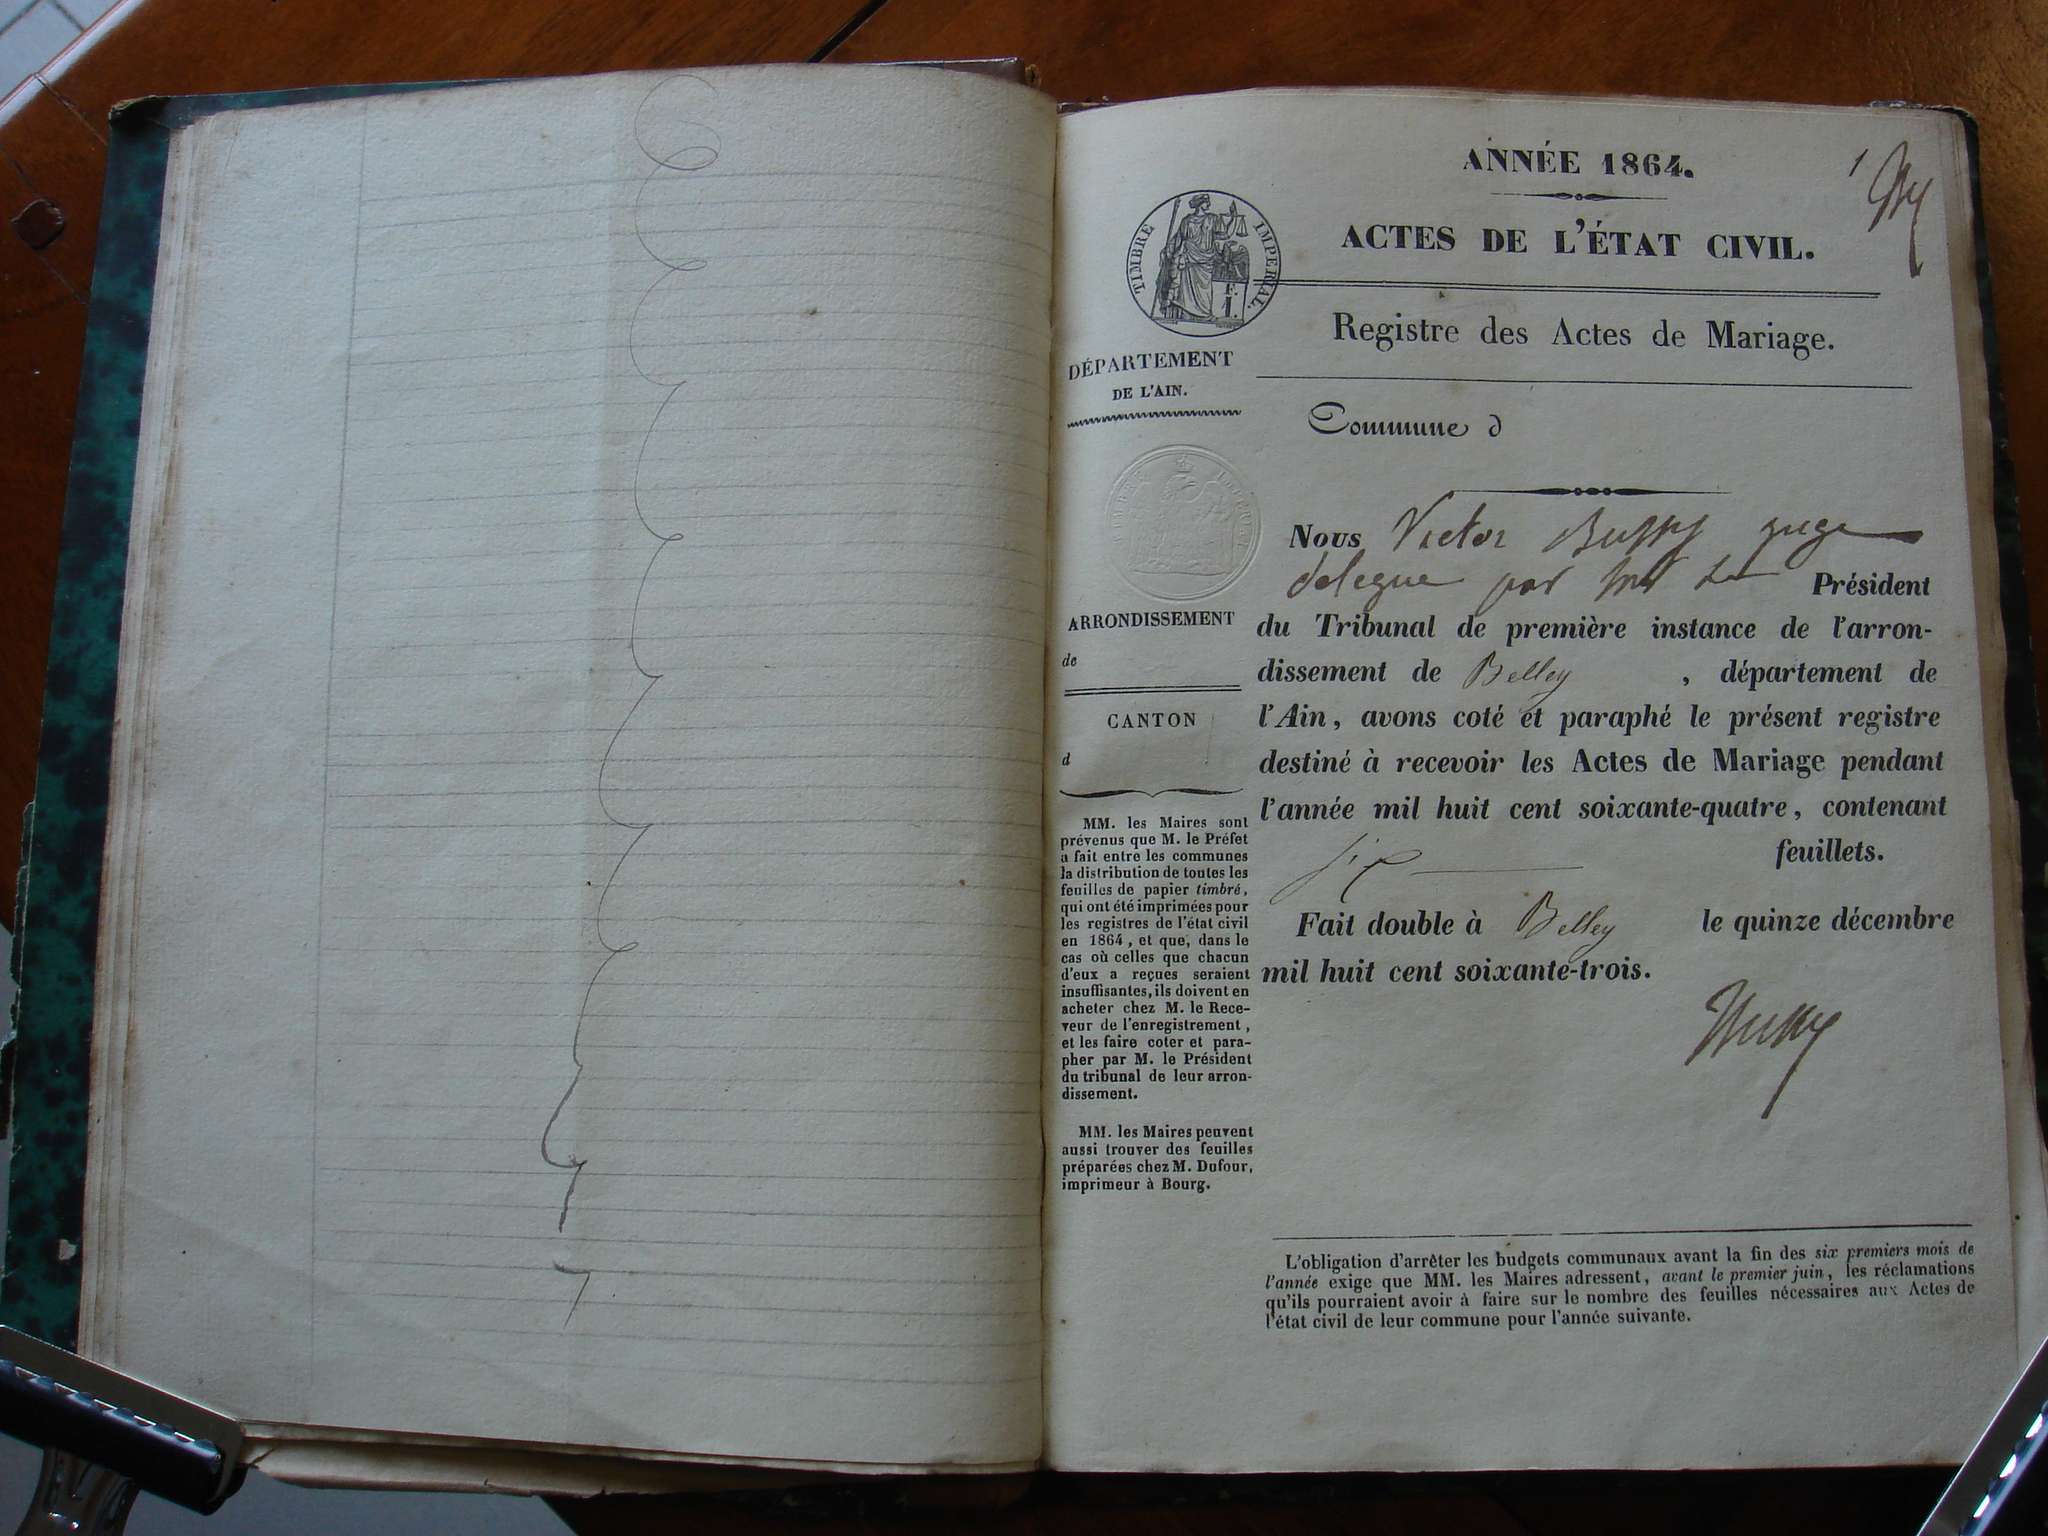 ANNÉE 1864.
1
ACTES DE L'ÉTAT CIVIL.
TIMBRE IMPÉRIAL.
F.
1.
Registre des Actes de Mariage.
DÉPARTEMENT
DE L'AIN.
Commune d
ARRONDISSEMENT
de
CANTON
d
MM. les Maires sont
prévenus que M. le Préfet
a fait entre les communes
la distribution de toutes les
feuilles de papier timbré,
qui ont été imprimées pour
les registres de l'état civil
en 1864, et que, dans le
cas où celles que chacun
d'eux a reçues seraient
insuffisantes, ils doivent en
acheter chez M. le Rece-
veur de l'enregistrement,
et les faire coter et para-
pher par M. le Président
du tribunal de leur arron-
dissement.
MM. les Maires peuvent
aussi trouver des feuilles
préparées chez M. Dufour,
imprimeur à Bourg.
Nous Victor Buffy juge
délégué par Mr Le Président
du Tribunal de première instance de l'arron-
dissement de Belley, département de
l'Ain, avons coté et paraphé le présent registre
destiné à recevoir les Actes de Mariage pendant
l'année mil huit cent soixante-quatre, contenant
six feuillets.
Fait double à Belley le quinze décembre
mil huit cent soixante-trois.
L'obligation d'arrêter les budgets communaux avant la fin des six premiers mois de
l'année exige que MM. les Maires adressent, avant le premier juin, les réclamations
qu'ils pourraient avoir à faire sur le nombre des feuilles nécessaires aux Actes de
l'état civil de leur commune pour l'année suivante.